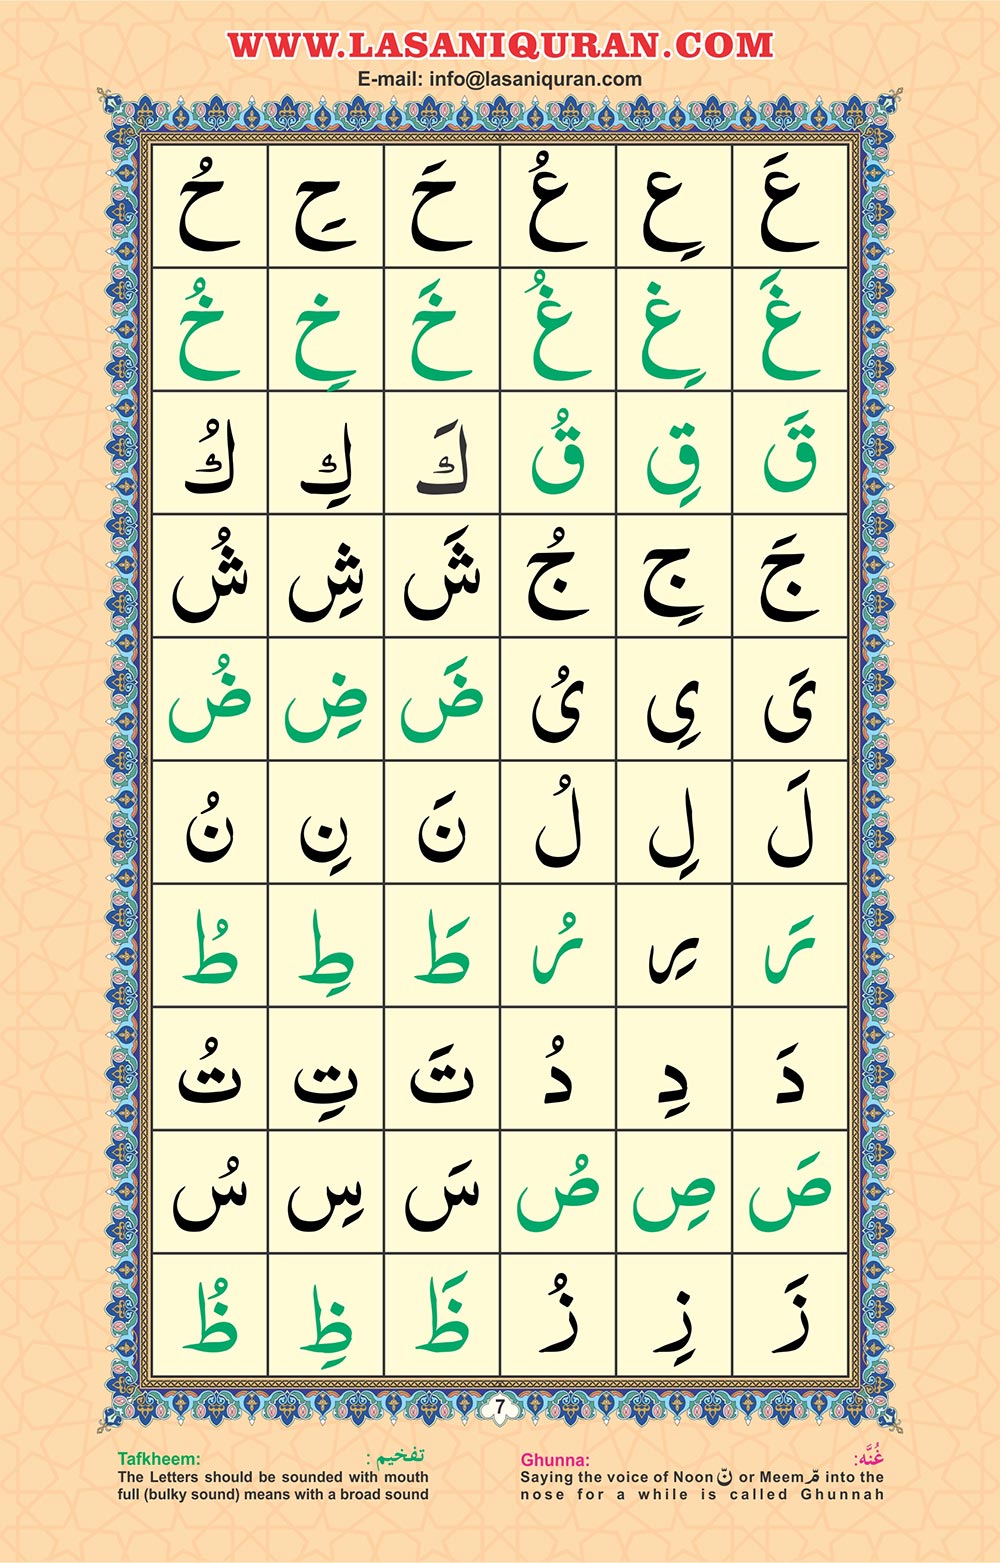 WWW.LASANIQURAN.COM
E-mail: info@lasaniquran.com
عَ عِ عُ حَ حِ حُ
غَ غِ غُ خَ خِ خُ
قَ قِ قُ كَ كِ كُ
جَ جِ جُ شَ شِ شُ
یَ یِ یُ ضَ ضِ ضُ
لَ لِ لُ نَ نِ نُ
رَ رِ رُ طَ طِ طُ
دَ دِ دُ تَ تِ تُ
صَ صِ صُ سَ سِ سُ
زَ زِ زُ ظَ ظِ ظُ
7
Tafkheem: تفخیم :
The Letters should be sounded with mouth
full (bulky sound) means with a broad sound
Ghunna: غُنَّه:
Saying the voice of Noon نّ or Meem مّ into the
nose for a while is called Ghunnah